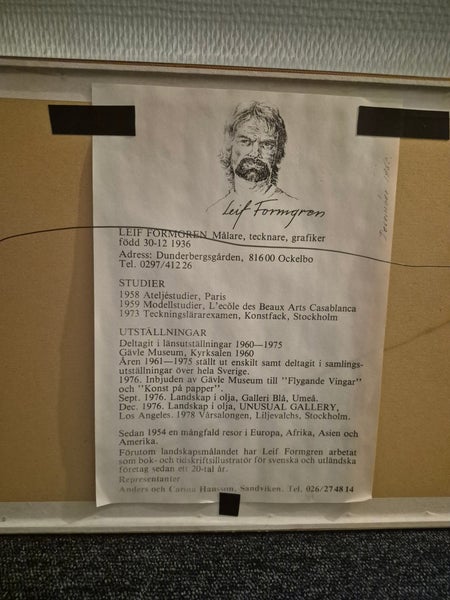 Leif Formgren
LEIF FORMGREN Målare, tecknare, grafiker
född 30-12 1936
Adress: Dunderbergsgården, 81600 Ockelbo
Tel. 0297/41226
STUDIER
1958 Ateljéstudier, Paris
1959 Modellstudier, L'ecôle des Beaux Arts Casablanca
1973 Teckningslärarexamen, Konstfack, Stockholm
UTSTÄLLNINGAR
Deltagit i länsutställningar 1960—1975
Gävle Museum, Kyrksalen 1960
Åren 1961—1975 ställt ut enskilt samt deltagit i samlings-
utställningar över hela Sverige.
1976. Inbjuden av Gävle Museum till "Flygande Vingar"
och "Konst på papper".
Sept. 1976. Landskap i olja, Galleri Blå, Umeå.
Dec. 1976. Landskap i olja, UNUSUAL GALLERY,
Los Angeles. 1978 Vårsalongen, Liljevalchs, Stockholm.
Sedan 1954 en mångfald resor i Europa, Afrika, Asien och
Amerika.
Förutom landskapsmålandet har Leif Formgren arbetat
som bok- och tidskriftsillustratör för svenska och utländska
företag sedan ett 20-tal år.
Representanter
Anders och Carina Hansson, Sandviken. Tel. 026/27 48 14